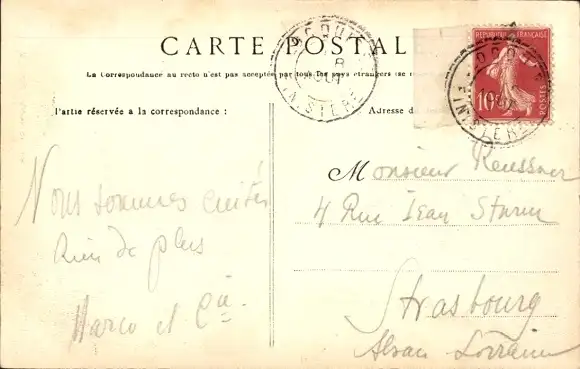 CARTE POSTALE
La Correspondance au recto n'est pas acceptée par tous les pays étrangers (se
Partie réservée à la correspondance :
Adresse d
REPUBLIQUE FRANÇAISE
10c
POSTES
FINISTERE
Nous sommes
Rien de plus
Marco et Cie
Monsieur
4 Rue Jean Sturm
Strasbourg
Alsace Lorraine